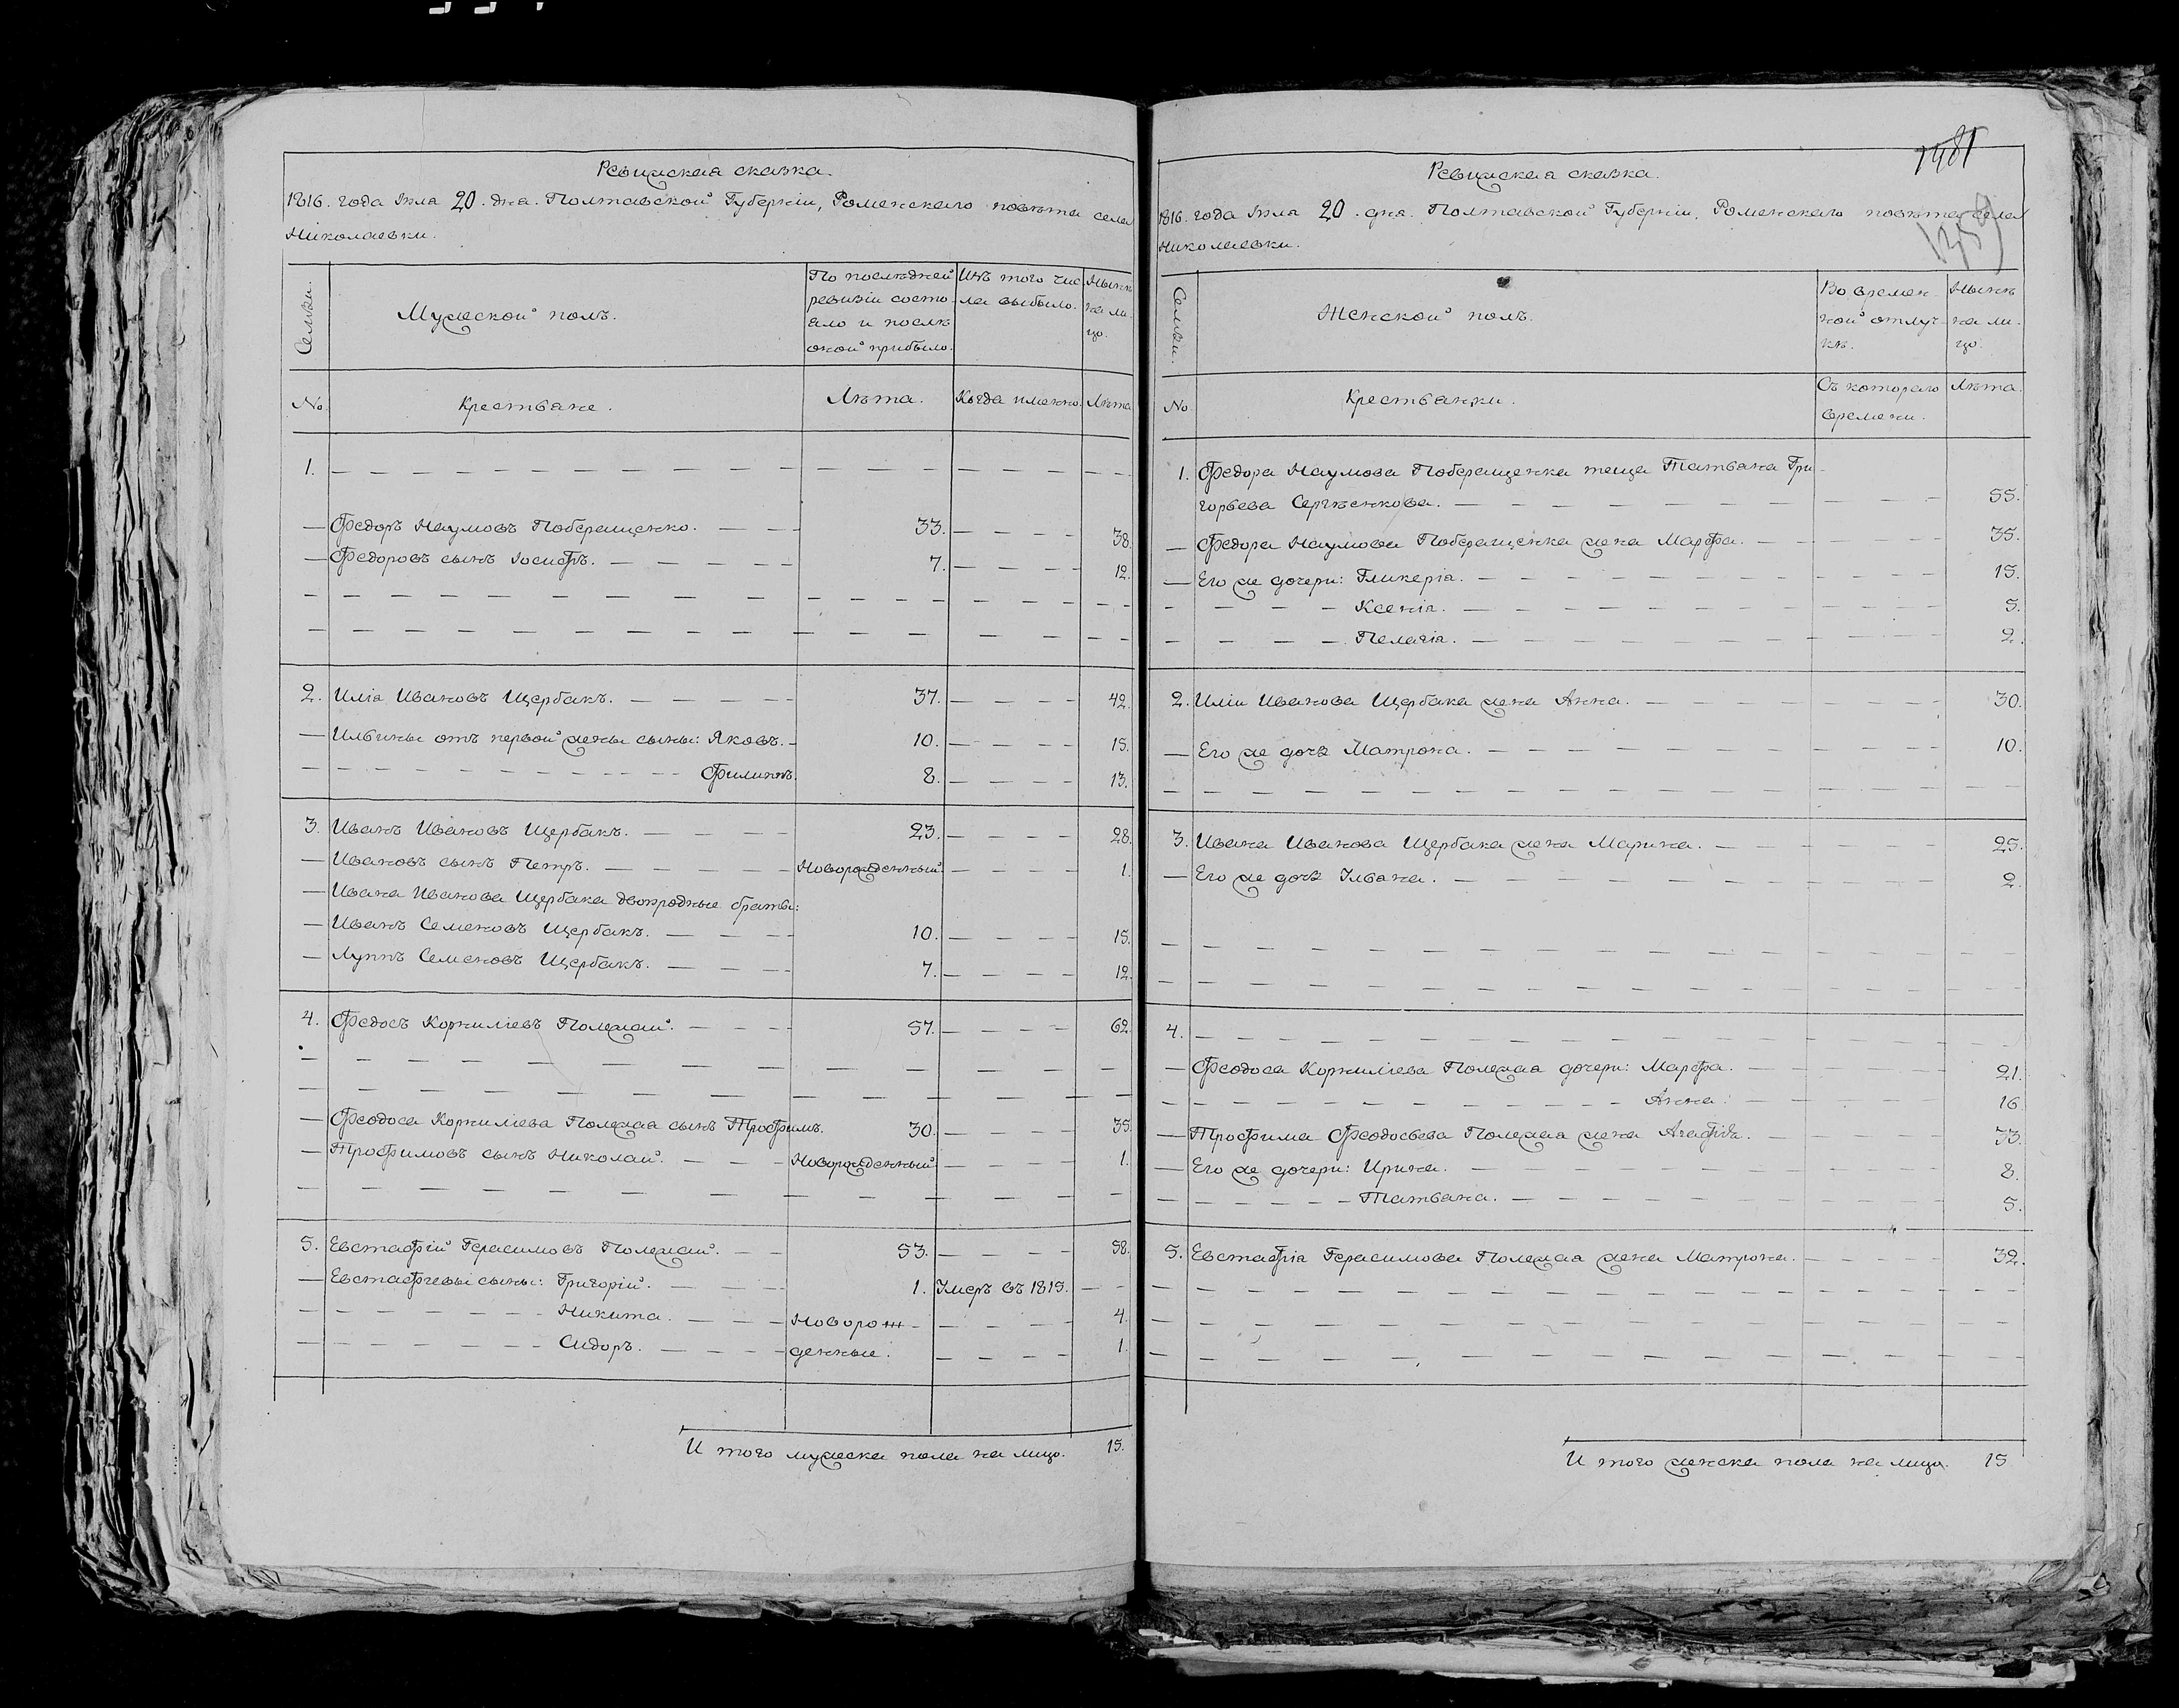 Ревижская сказка.
1816. года Іюля 20. дня. Полтавской Губерніи, Роменскаго повѣта села
Николаевки.
Семьи.
Мужеской полъ.
По послѣдней
ревизіи состо-
яло и послѣ
оной прибыло.
Изъ того чис
ла выбыло.
Нынѣ
на ли-
цо.
No.
Крестьяне.
Лѣта.
Когда именно.
Лѣта
1.
Федоръ Наумовъ Поберащенко. 33. 38.
Федоровъ сынъ Іосифъ. 7. 12.
2. Иліа Ивановъ Щербакъ. 37. 42.
Ильины отъ первой жены сыны: Яковъ. 10. 15.
Филиппъ. 8. 13.
3. Иванъ Ивановъ Щербакъ. 23. 28.
Ивановъ сынъ Петръ. Новорожденный. 1.
Ивана Иванова Щербака двоюродные братьи:
Иванъ Семеновъ Щербакъ. 10. 15.
Луппъ Семеновъ Щербакъ. 7. 12.
4. Федосъ Корниліевъ Полежай. 57. 62.
Феодоса Корниліева Полежая сынъ Трофимъ. 30. 35.
Трофимовъ сынъ Николай. Новорожденный. 1.
5. Евстафій Герасимовъ Полежай. 53. 58.
Евстафіевы сыны: Григорій. 1. Умеръ въ 1815.
Никита. Новорож- 4.
Сидоръ. денные. 1.
И того мужеска пола на лицо. 15.
1481
Ревижская сказка.
1816. года Іюля 20. дня. Полтавской Губерніи, Роменскаго повѣта села
Николаевки.
Семьи.
Женской полъ.
Во времен-
ной отлуч-
кѣ.
Нынѣ
на ли-
цо.
No.
Крестьянки.
Съ котораго
времени.
Лѣта.
1. Федора Наумова Поберащенка теща Татьяна Гри-
горьева Сергѣенкова. 55.
Федора Наумова Поберащенка жена Марфа. 35.
Его же дочери: Гликеріа. 15.
Ксеніа. 5.
Пелагіа. 2.
2. Иліи Иванова Щербака жена Анна. 30.
Его же дочь Матрона. 10.
3. Ивана Иванова Щербака жена Марина. 25.
Его же дочь Ульяна. 2.
4.
Феодоса Корниліева Полежая дочери: Марфа. 21.
Анна. 16
Трофима Феодосьева Полежая жена Агафіа. 33.
Его же дочери: Ирина. 8.
Татьяна. 5.
5. Евстафіа Герасимова Полежая жена Матрона. 32.
И того женска пола на лицо. 15